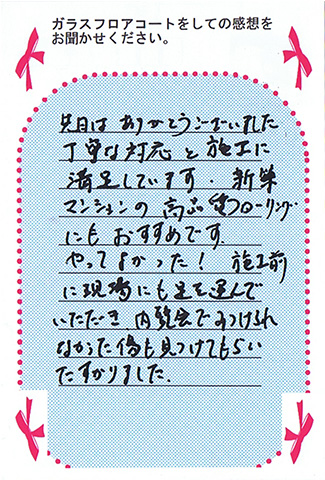 ガラスフロアコートをしての感想を
お聞かせください。
先日は ありがとうございました
丁寧な対応と施工に
満足しています. 新築
マンションの高品質フローリング
にもおすすめです.
やってよかった! 施工前
に現場にも足を運んで
いただき、内覧会でみつけられ
なかった傷も見つけてもらい
たすかりました.